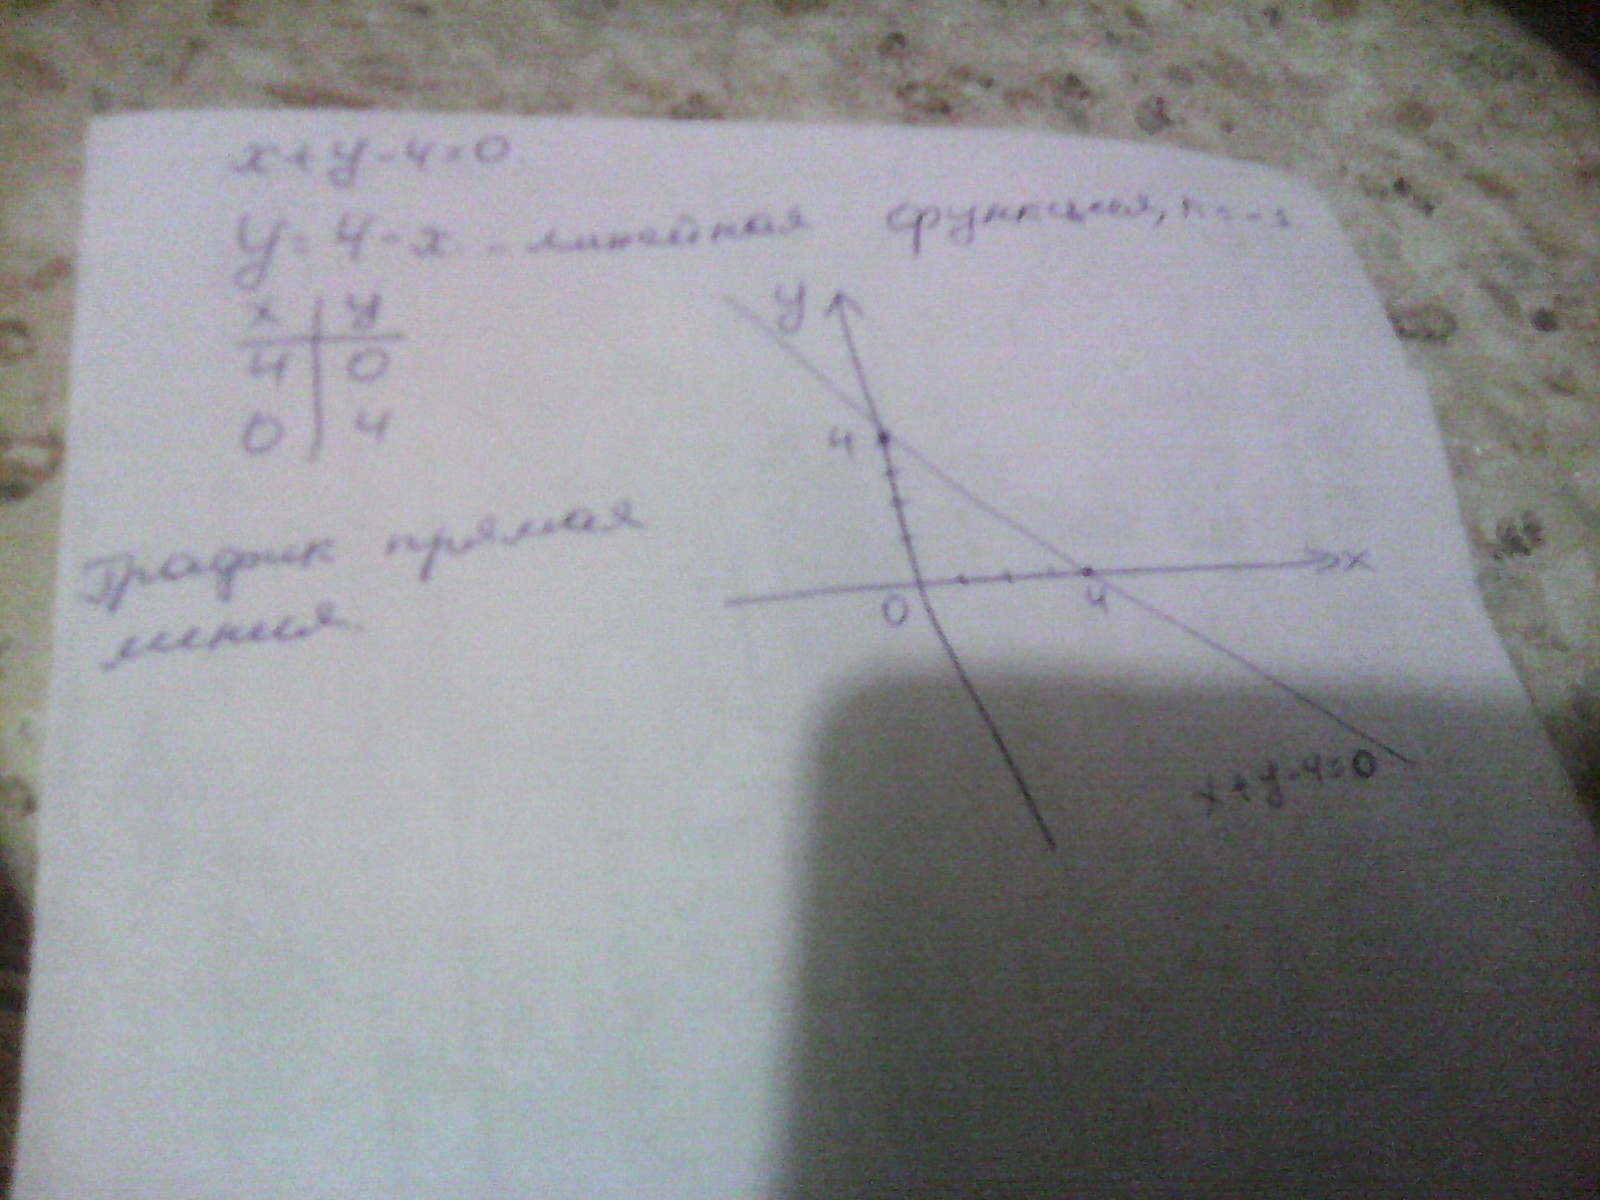 x+y-4=0
y=4-x - линейная функция, k=-1
x | y
4 | 0
0 | 4
График прямая
линия.
y
4
0
4
x
x+y-4=0